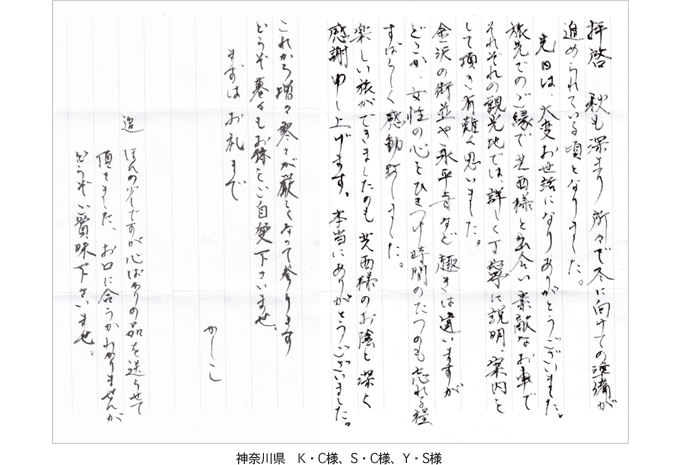 拝啓　秋も深まり所々で冬に向けての準備が
進められている頃となりました。
先日は、大変お世話になりありがとうございました。
旅先でのご縁で 西様と出会い素敵なお車で
それぞれの観光地では詳しく丁寧に説明、案内を
して頂き有難く思いました。
金沢の街並や永平寺など趣きは違いますが
どこか、女性の心をひきつけ時間のたつのも忘れる程
すばらしく感動 しました。
楽しい旅ができましたのも 西様のお陰と深く
感謝申し上げます。本当にありがとうございました。
これから増々寒さが厳しくなって参ります
どうぞ もお体をご自愛下さいませ。
まずはお礼まで
かしこ
追　ほんの少しですが心ばかりの品を送らせて
頂きました、お口に合うかわかりませんが
どうぞご賞味下さいませ。
神奈川県　K・C様、S・C様、Y・S様